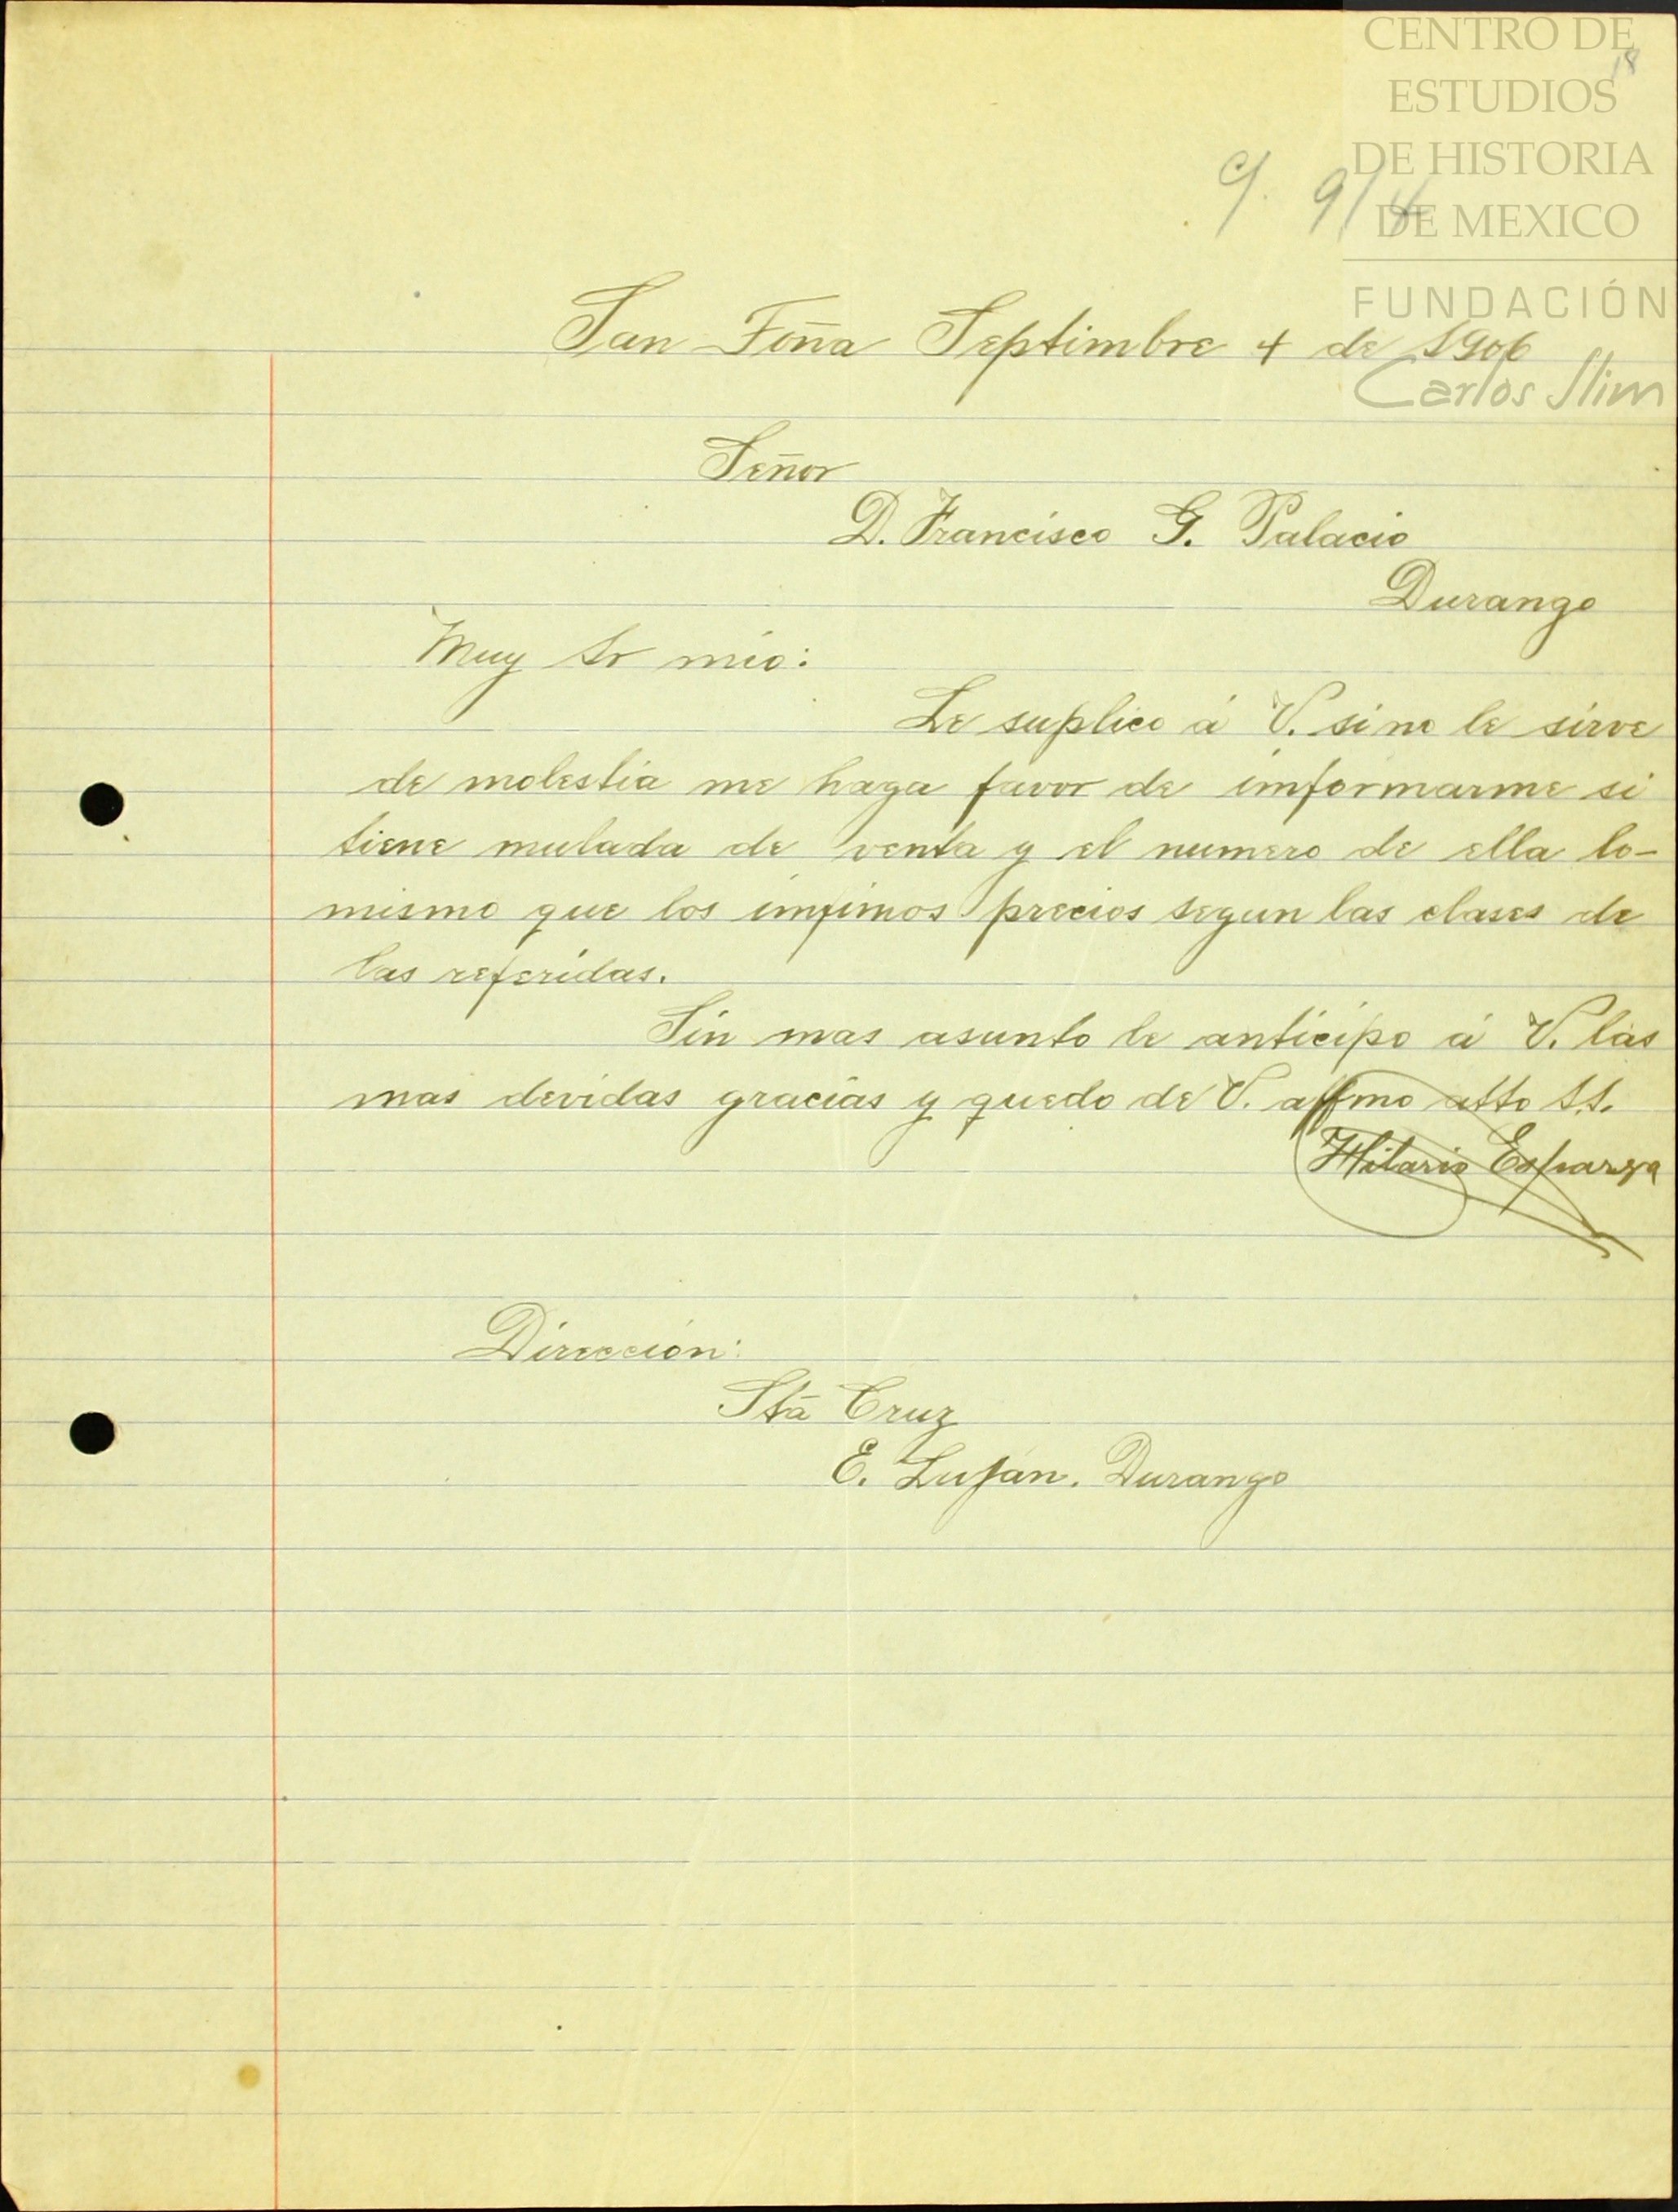 CENTRO DE
18
ESTUDIOS
DE HISTORIA
DE MEXICO
FUNDACIÓN
Carlos Slim
San Septimbre 4 de 1906
Señor
D. Francisco G. Palacio
Durango
Muy Sr mio:
Le suplico á V. si no le sirve
de molestia me haga favor de imformarme si
tiene mulada de venta y el numero de ella lo-
mismo que los imfimos precios segun las clases de
las referidas.
Sin mas asunto le anticipo á V. las
mas devidas gracias y quedo de V. affmo atto S.S.
Hilario Esparza
Dirección:
Sta Cruz
E. Luján. Durango